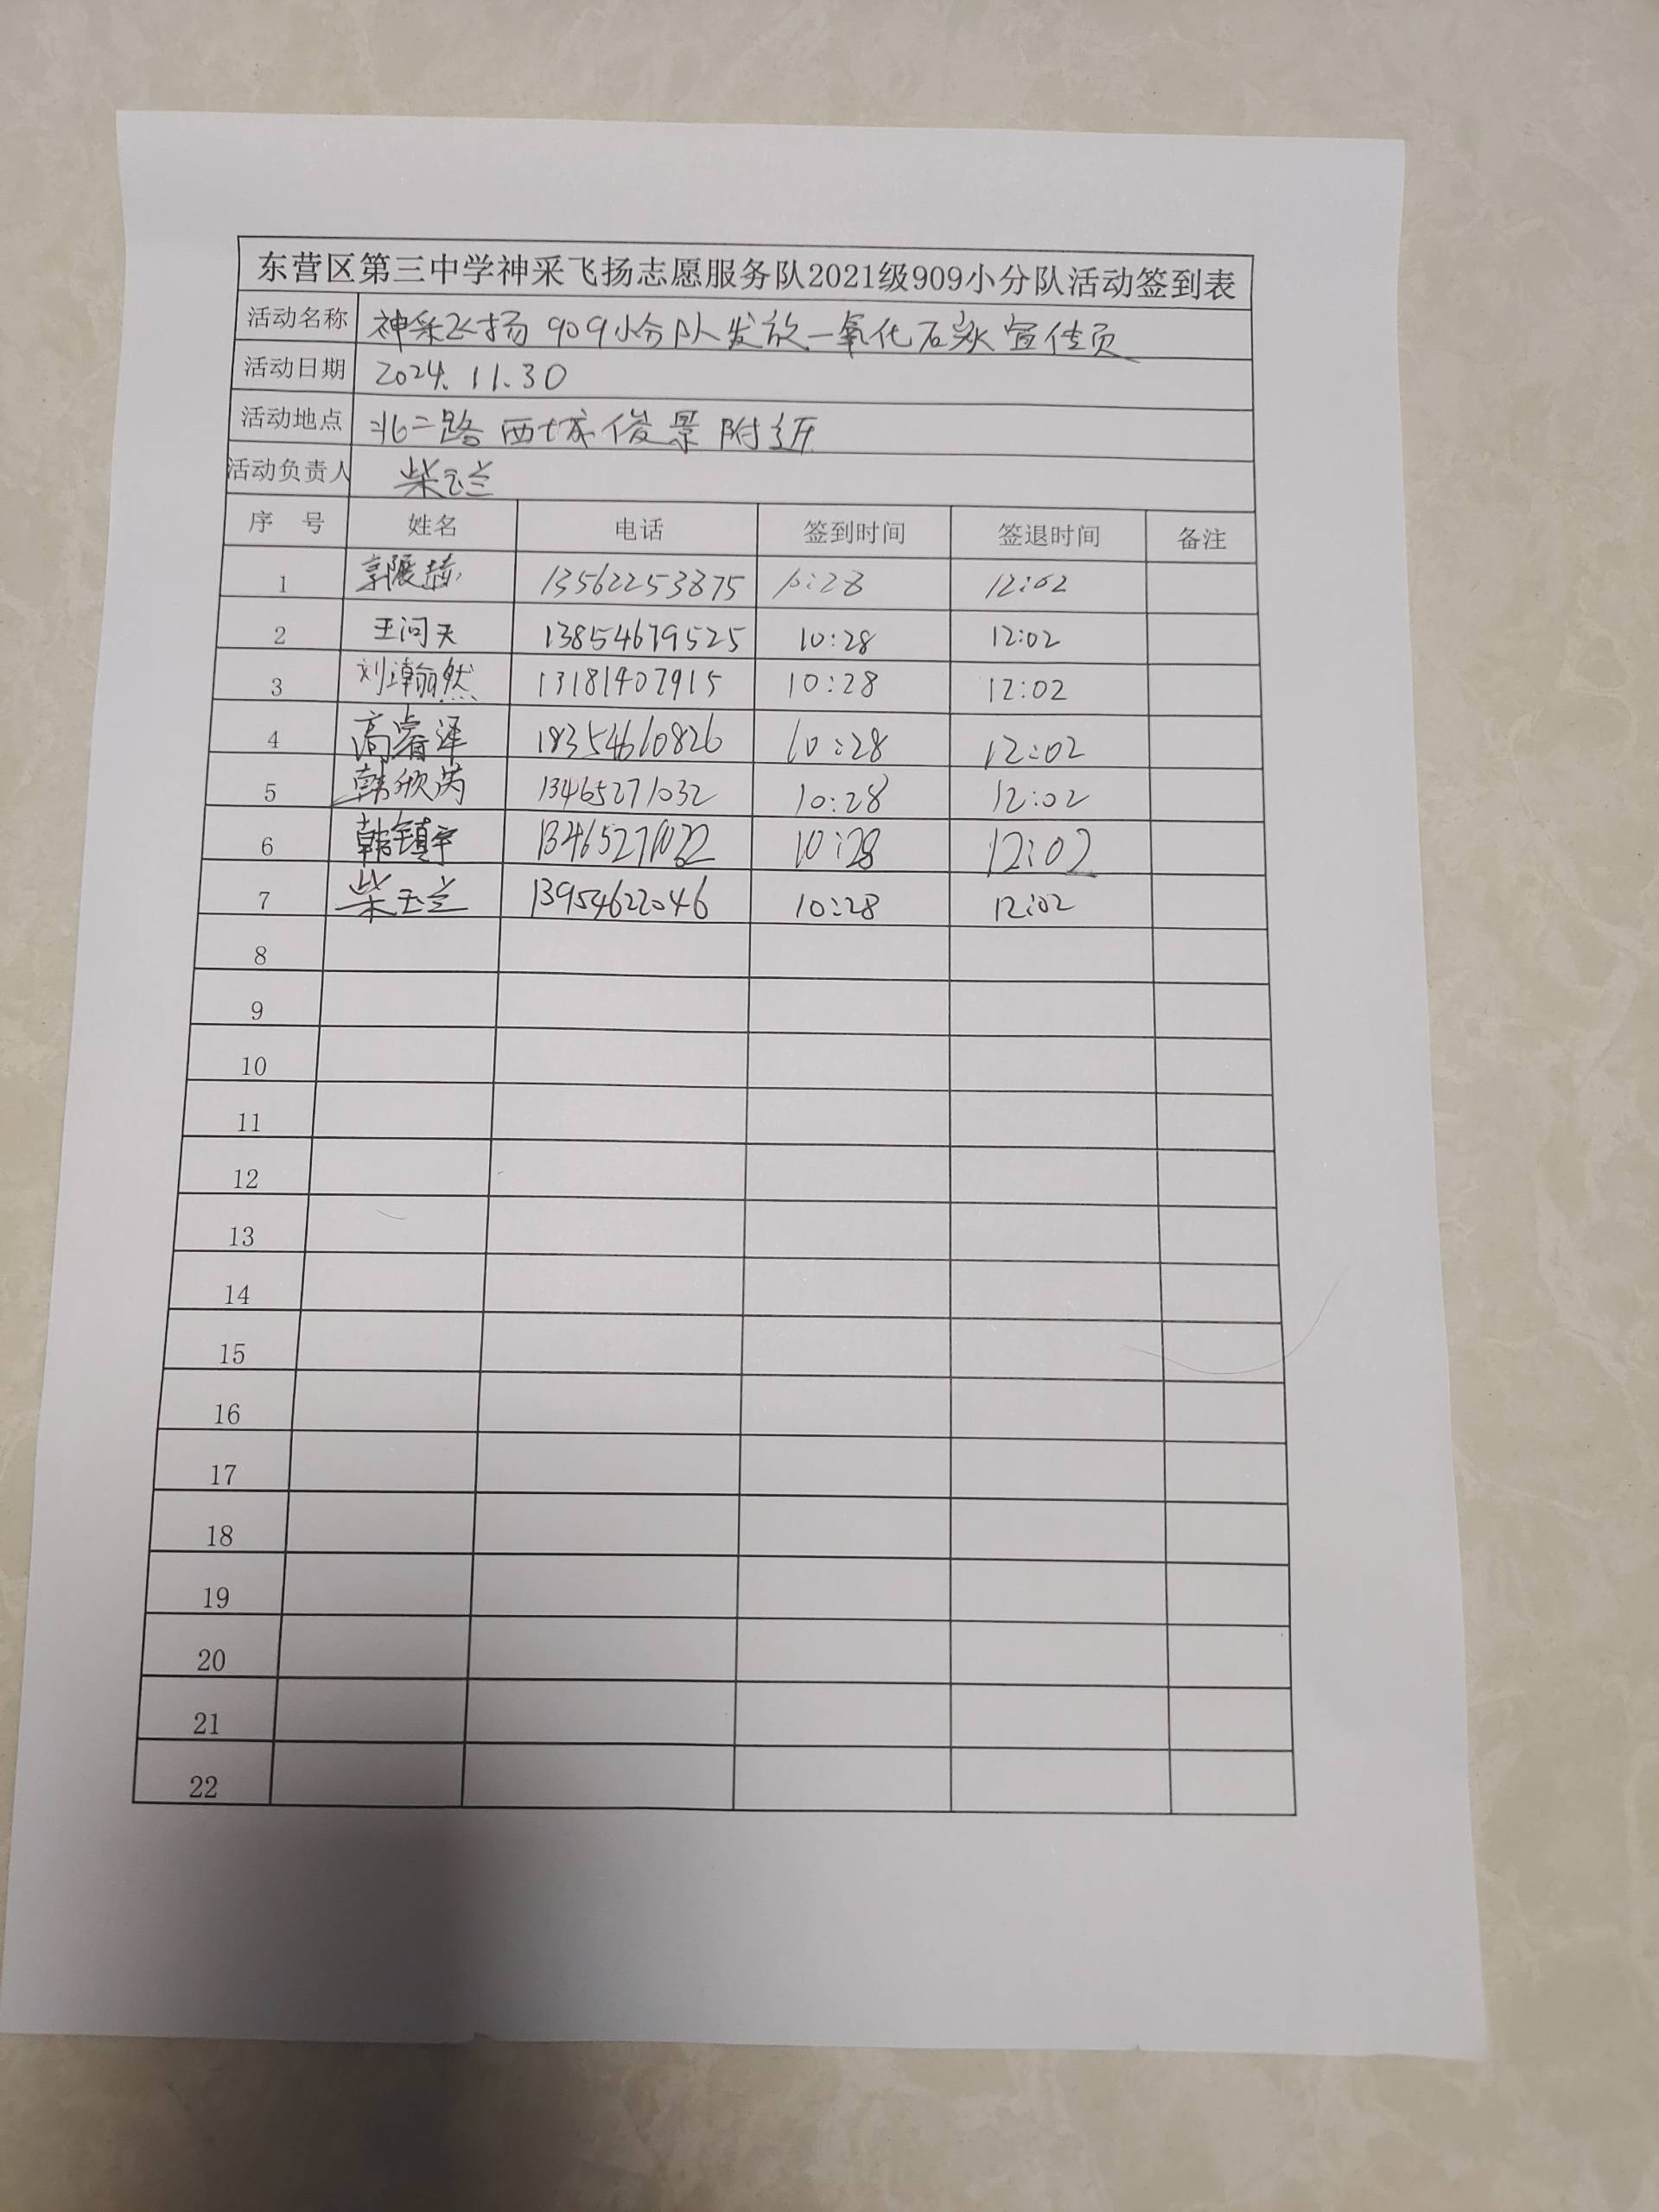 东营区第三中学神采飞扬志愿服务队2021级909小分队活动签到表
活动名称 神采飞扬909小分队发放一氧化石炭宣传页
活动日期 2024.11.30
活动地点 北二路西城俊景附近
活动负责人 柴玉兰
序 号 姓名 电话 签到时间 签退时间 备注
1 郭展 13562253875 10:28 12:02
2 王问天 13854679525 10:28 12:02
3 刘瀚然 13181407915 10:28 12:02
4 高睿泽 18354610826 10:28 12:02
5 韩欣芮 13465271032 10:28 12:02
6 韩镇宇 13465271032 10:28 12:02
7 柴玉兰 13954622046 10:28 12:02
8
9
10
11
12
13
14
15
16
17
18
19
20
21
22